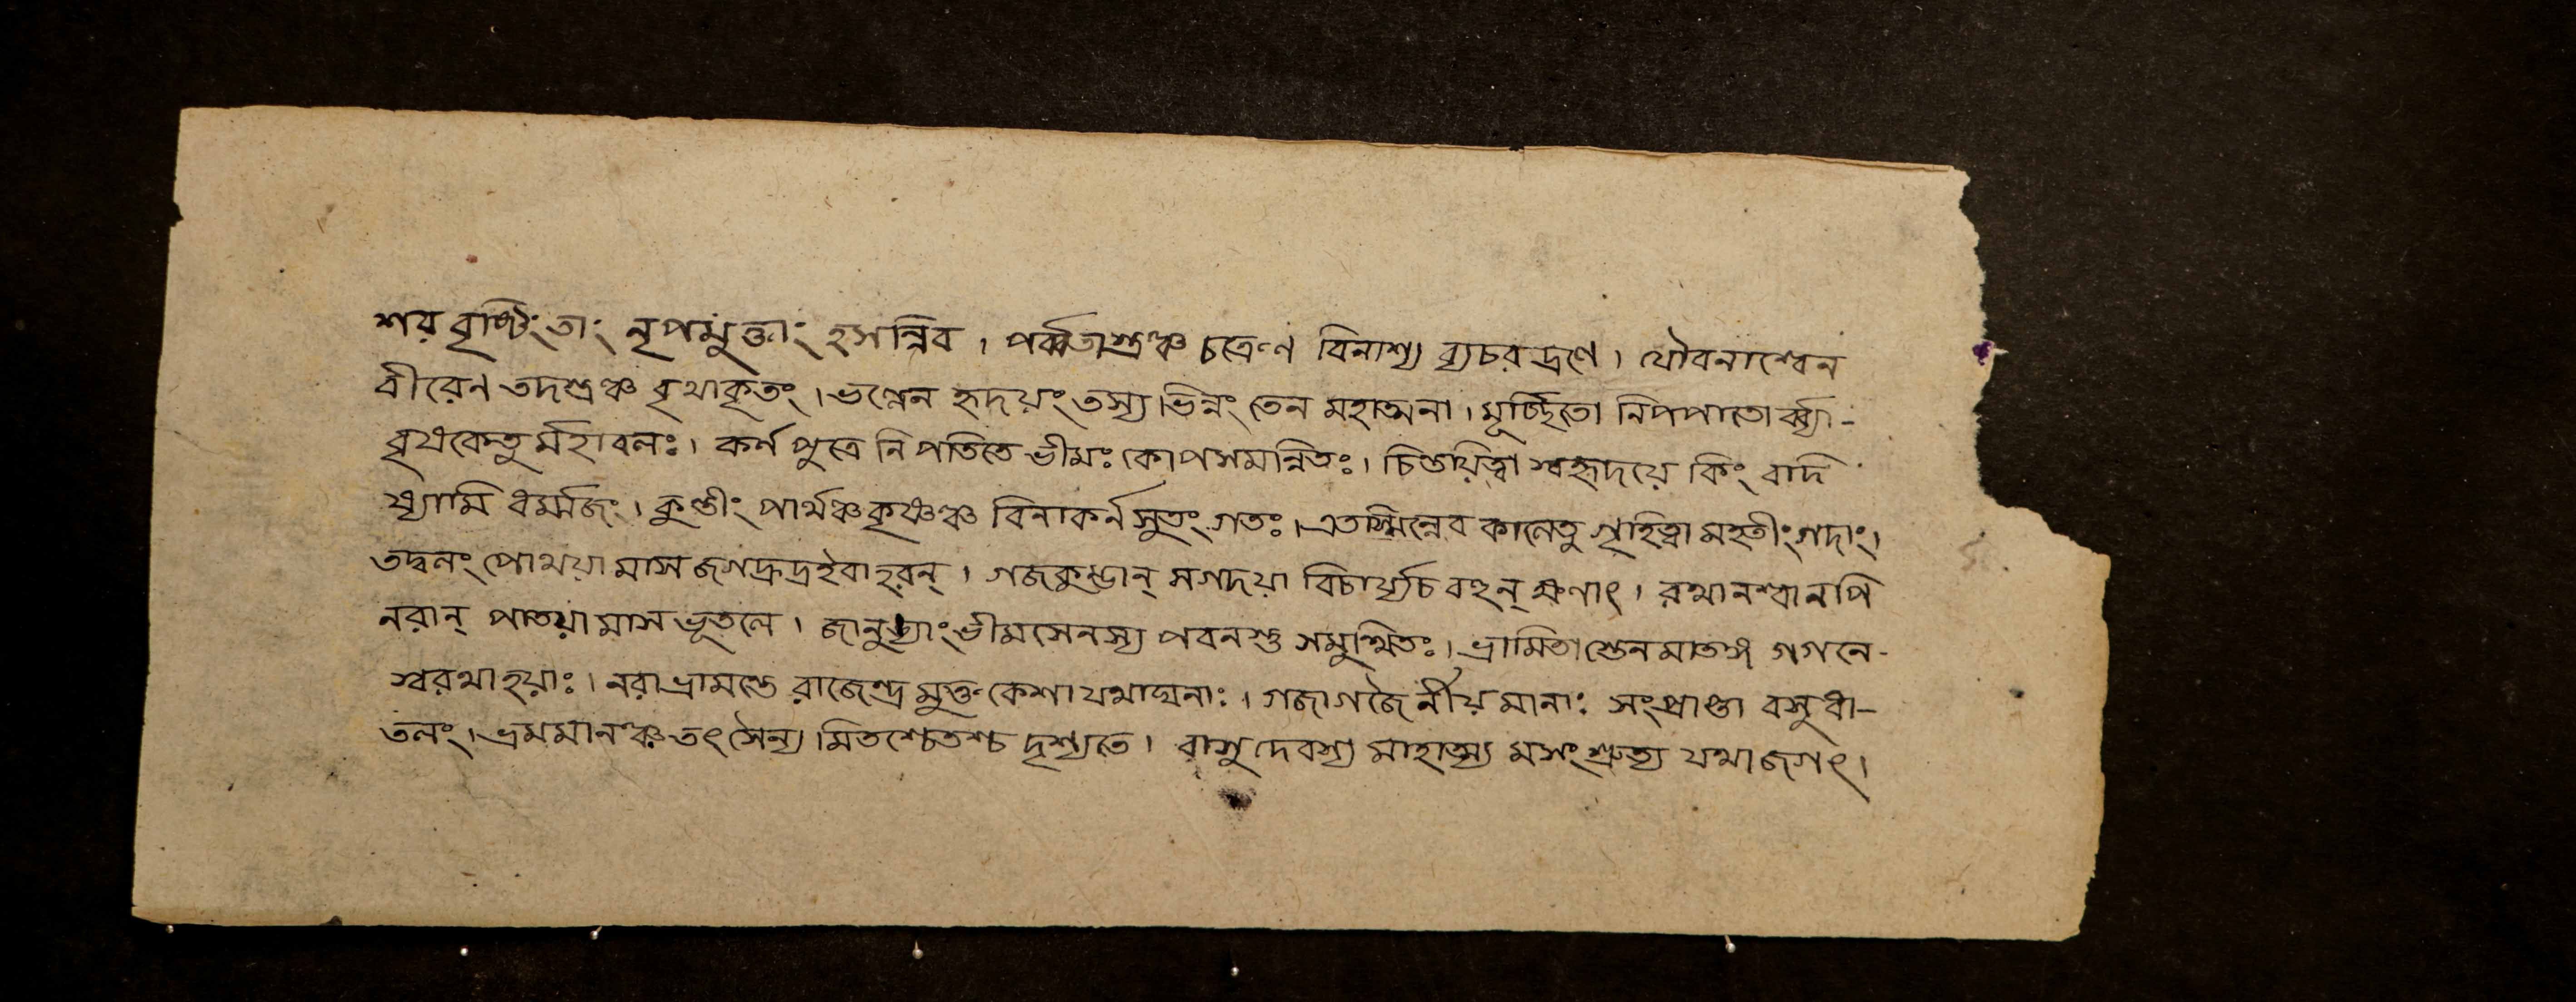 শর বৃষ্টিং তাং নৃপমুক্তাং হসন্নিব । পর্ব্বতাস্ত্রঞ্চ চক্রেণ বিনাশ্য ব্যচরদ্রণে । যৌবনাশ্বেন
বীরেণ তদস্ত্রঞ্চ বৃথাকৃতং । ভল্লেন হৃদয়ং তস্য ভিন্নং তেন মহাত্মনা । মূর্চ্ছিতো নিপপাতোর্ব্ব্যা-
বৃষকেতু র্মহাবলঃ । কর্ন পুত্রে নিপতিতে ভীমঃ কোপসমন্নিতঃ । চিন্তয়িত্বা স্বহৃদয়ে কিং বাদি
ষ্যামি ধর্ম্মজং । কুন্তীং পার্থঞ্চ কৃষ্ণঞ্চ বিনাকর্নসুতং গতঃ । এতস্মিন্নেব কালেতু গৃহিত্বা মহতীং গদাং ।
তদ্বলং পোথয়ামাস জগদ্রুদ্রইবাহরন্ । গজকুম্ভান্ সগদয়া বিচার্য্যচ বহুন্ ক্ষণাৎ । রথানশ্বানপি
নরান্ পাতয়ামাস ভূতলে । জানুভ্যাং ভীমসেনস্য পবনস্তু সমুত্থিতঃ । ভ্রামিতাস্তেন মাতঙ্গ গগনে-
শ্বরথাহয়াঃ । নরাভ্রামন্তে রাজেন্দ্র মুক্তকেশা যথাঘনাঃ । গজাগজৈর্নীয়মানাঃ সংপ্রাপ্তা বসুধা-
তলং । ভ্রমমানঞ্চ তৎ সৈন্য মিতশ্চেতশ্চ দৃশ্যতে । বাসুদেবস্য মাহাত্ম্য মসংশ্রুত্য যথা জগৎ ।